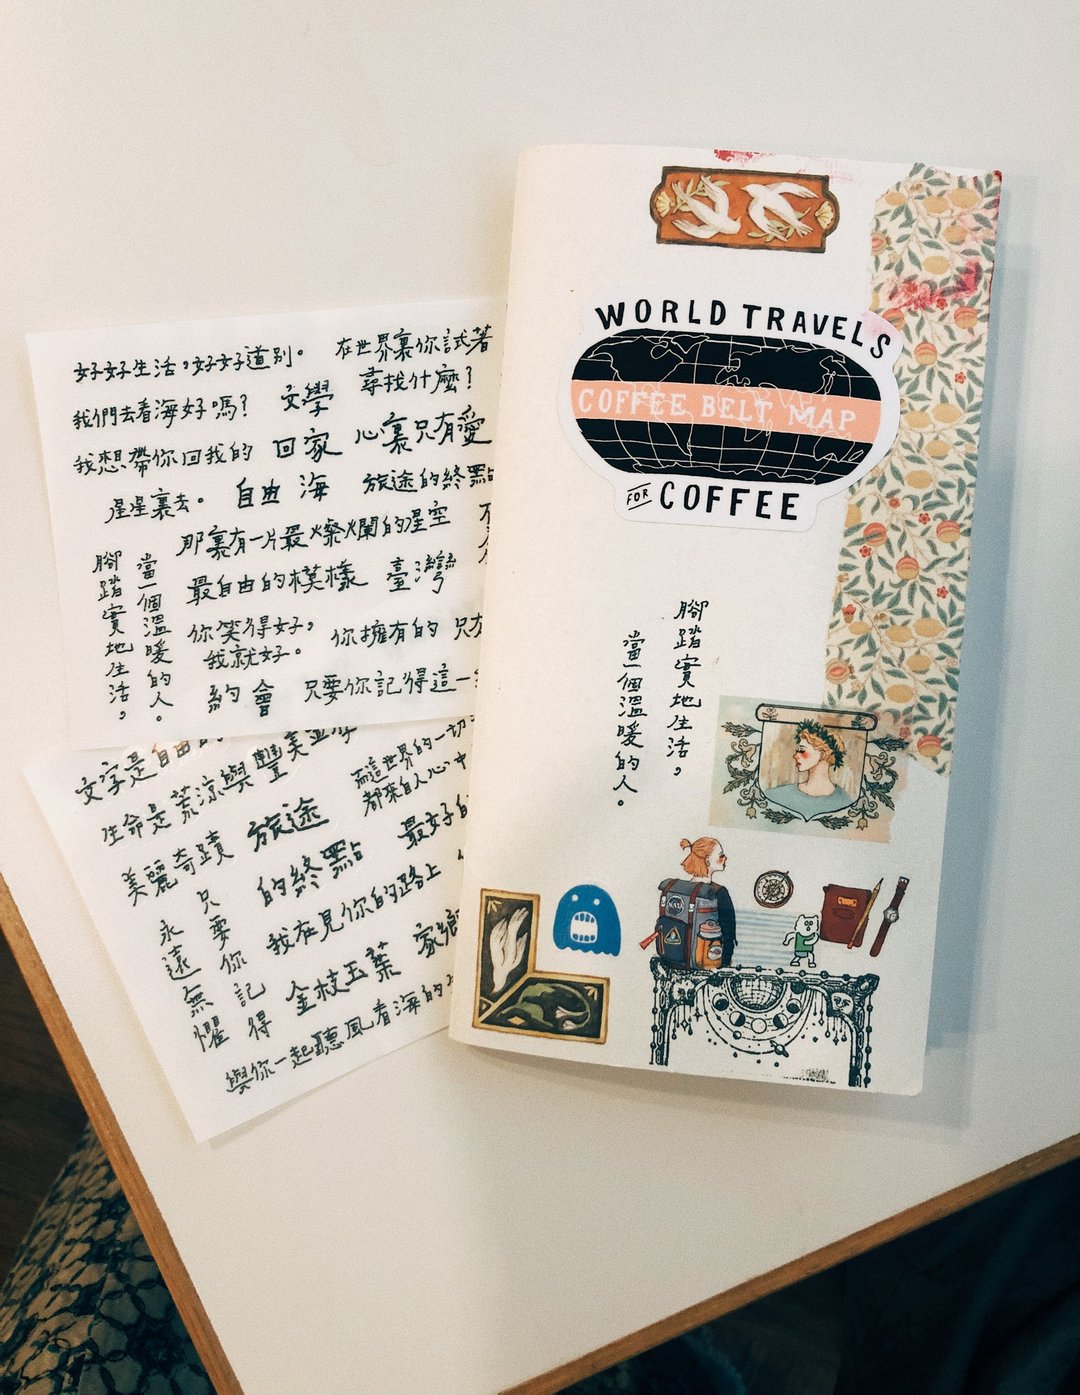 好好生活，好好道別。
在世界裏你試著
尋找什麼？
我們去看海好嗎？
文學
我想帶你回我的
星星裏去。
回家
心裏只有愛
自由
海
旅途的終點
那裏有一片最燦爛的星空
腳踏實地生活，
當一個溫暖的人。
最自由的模樣
臺灣
你笑得好，
我就好。
你擁有的
約會
只要你記得這一
文字是自由的
生命是荒涼與豐美並存
美麗奇蹟
旅途
的終點
而這世界的一切
都來自人心中
最好的
我在見你的路上
只要你記得
永遠無懼
金枝玉葉
與你一起聽風看海的
WORLD TRAVELS
COFFEE BELT MAP
FOR COFFEE
腳踏實地生活，
當一個溫暖的人。
NASA